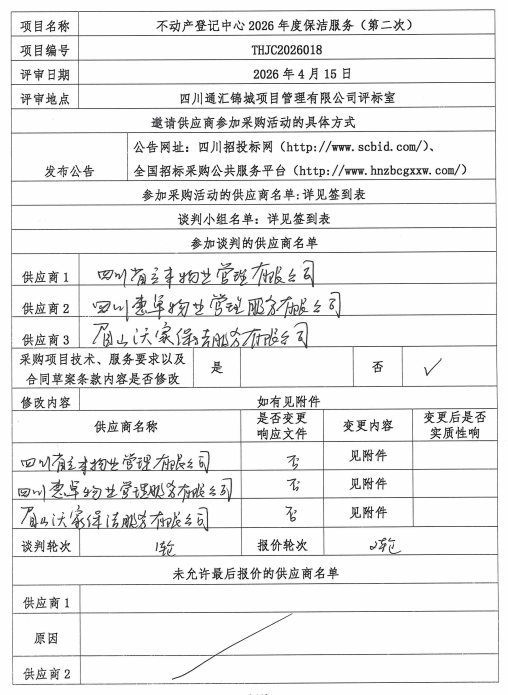 项目名称 不动产登记中心2026年度保洁服务（第二次）
项目编号 THJC2026018
评审日期 2026年4月15日
评审地点 四川通汇锦城项目管理有限公司评标室
邀请供应商参加采购活动的具体方式
发布公告 公告网址：四川招投标网（http://www.scbid.com/）、
全国招标采购公共服务平台（http://www.hnzbcgxxw.com/）
参加采购活动的供应商名单：详见签到表
谈判小组名单：详见签到表
参加谈判的供应商名单
供应商1 四川省 物业管理有限公司
供应商2 四川惠 物业管理服务有限公司
供应商3 眉山沃家保洁服务有限公司
采购项目技术、服务要求以及
合同草案条款内容是否修改 是 否 ✓
修改内容 如有见附件
供应商名称 是否变更
响应文件 变更内容 变更后是否
实质性响
四川省 物业管理有限公司 否 见附件
四川惠 物业管理服务有限公司 否 见附件
眉山沃家保洁服务有限公司 否 见附件
谈判轮次 1轮 报价轮次 2轮
未允许最后报价的供应商名单
供应商1
原因
供应商2